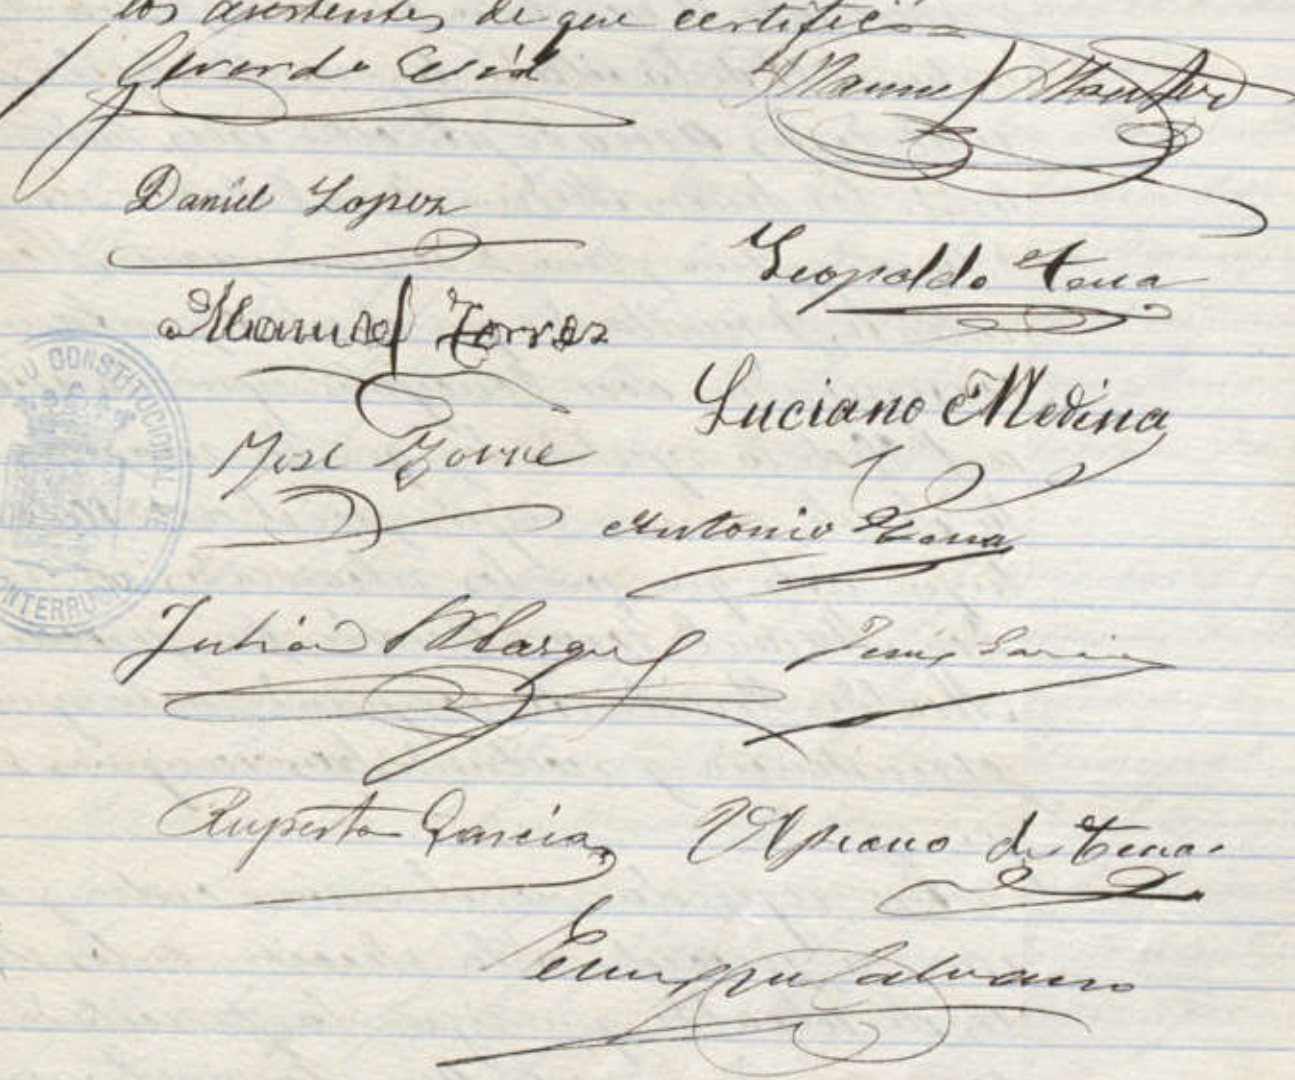 los asistentes, de que certifico
Gerardo
Manuel
Daniel Lopez
Leopoldo Tena
Manuel Torres
Luciano Medina
José Torre
Antonio Tena
Julián Jesús García
Ruperto García de Tena
Enrique Galvano
CONSTITUCIONAL DE
MONTERRUBIO